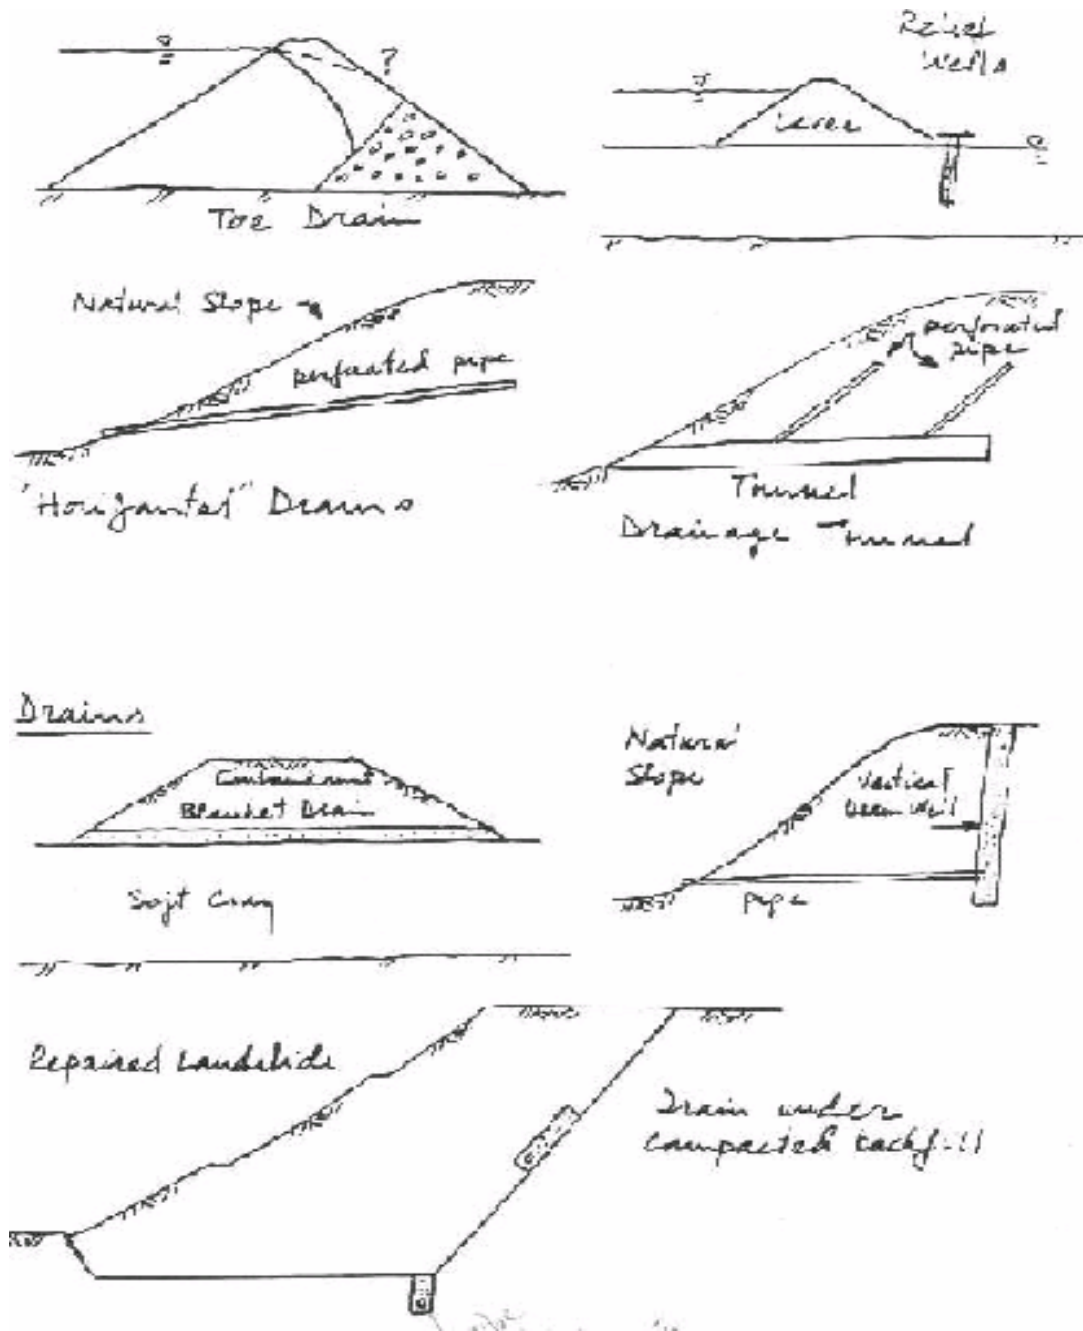 Relief
Wells
?
Levee
Toe Drain
Natural Slope
perforated pipe
"Horizontal" Drains
perforated
pipe
Tunnel
Drainage Tunnel
Drains
Embankment
Blanket Drain
Soft Clay
Natural
Slope
Vertical
Drain Well
pipe
Repaired Landslide
Drain under
compacted backfill